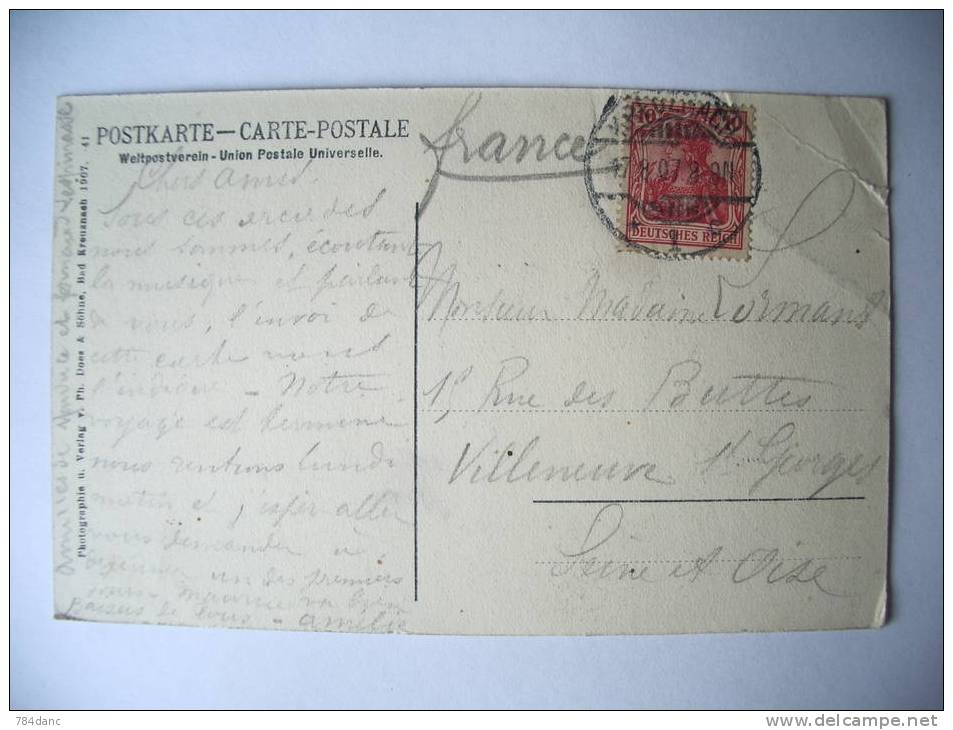 POSTKARTE — CARTE-POSTALE
Weltpostverein - Union Postale Universelle.
france
10
17.8.07.8-9N
DEUTSCHES REICH
Chers Amis.
Sous ces arcades
nous sommes, écoutant
la musique et parlant
de vous, l'envoi de
cette carte vous
l'indique - Notre
voyage est terminé
nous rentrons lundi
matin et j'espère aller
vous demander à
déjeuner un des premiers
jours - Maurice va bien
Baisers de tous - Amélie
Monsieur Madame Lormant
15 Rue des Buttes
Villeneuve St. Georges
Seine et Oise
Photographie u. Verlag v. Ph. Doos & Söhne, Bad Kreuznach 1907. 41
amitiés de Maurice et
784danc
www.delcampe.net